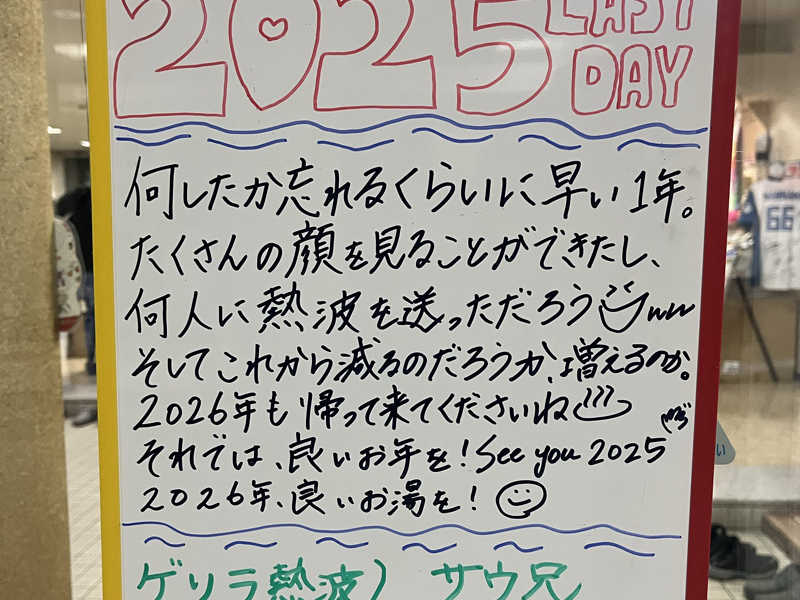 2025 LAST DAY
何したか忘れるくらいに早い1年。
たくさんの顔を見ることができたし、
何人に熱波を送っただろうww
そしてこれから減るのだろうか、増えるのか。
2026年も帰って来てくださいね
それでは、良いお年を!See you 2025
2026年、良いお湯を!
ゲリラ熱波) サウ兄
66
い